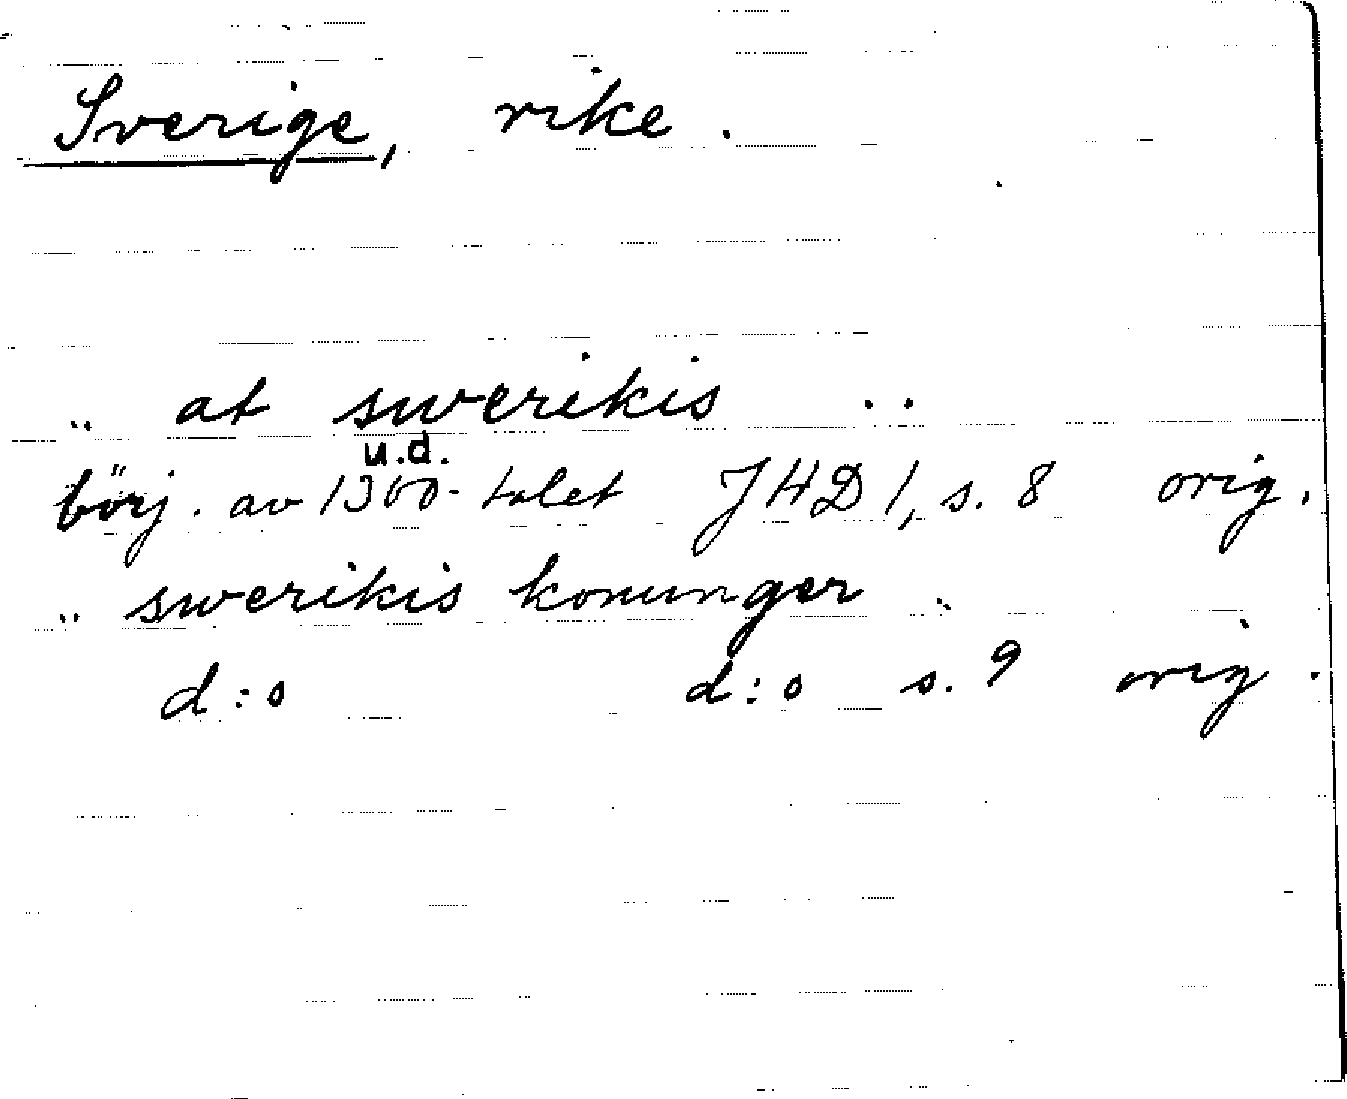 Sverige, rike.
.. at swerikis ..
u.d.
börj. av 1300-talet JHD 1, s. 8 orig.
.. swerikis konunger ..
d:o d:o s. 9 orig.